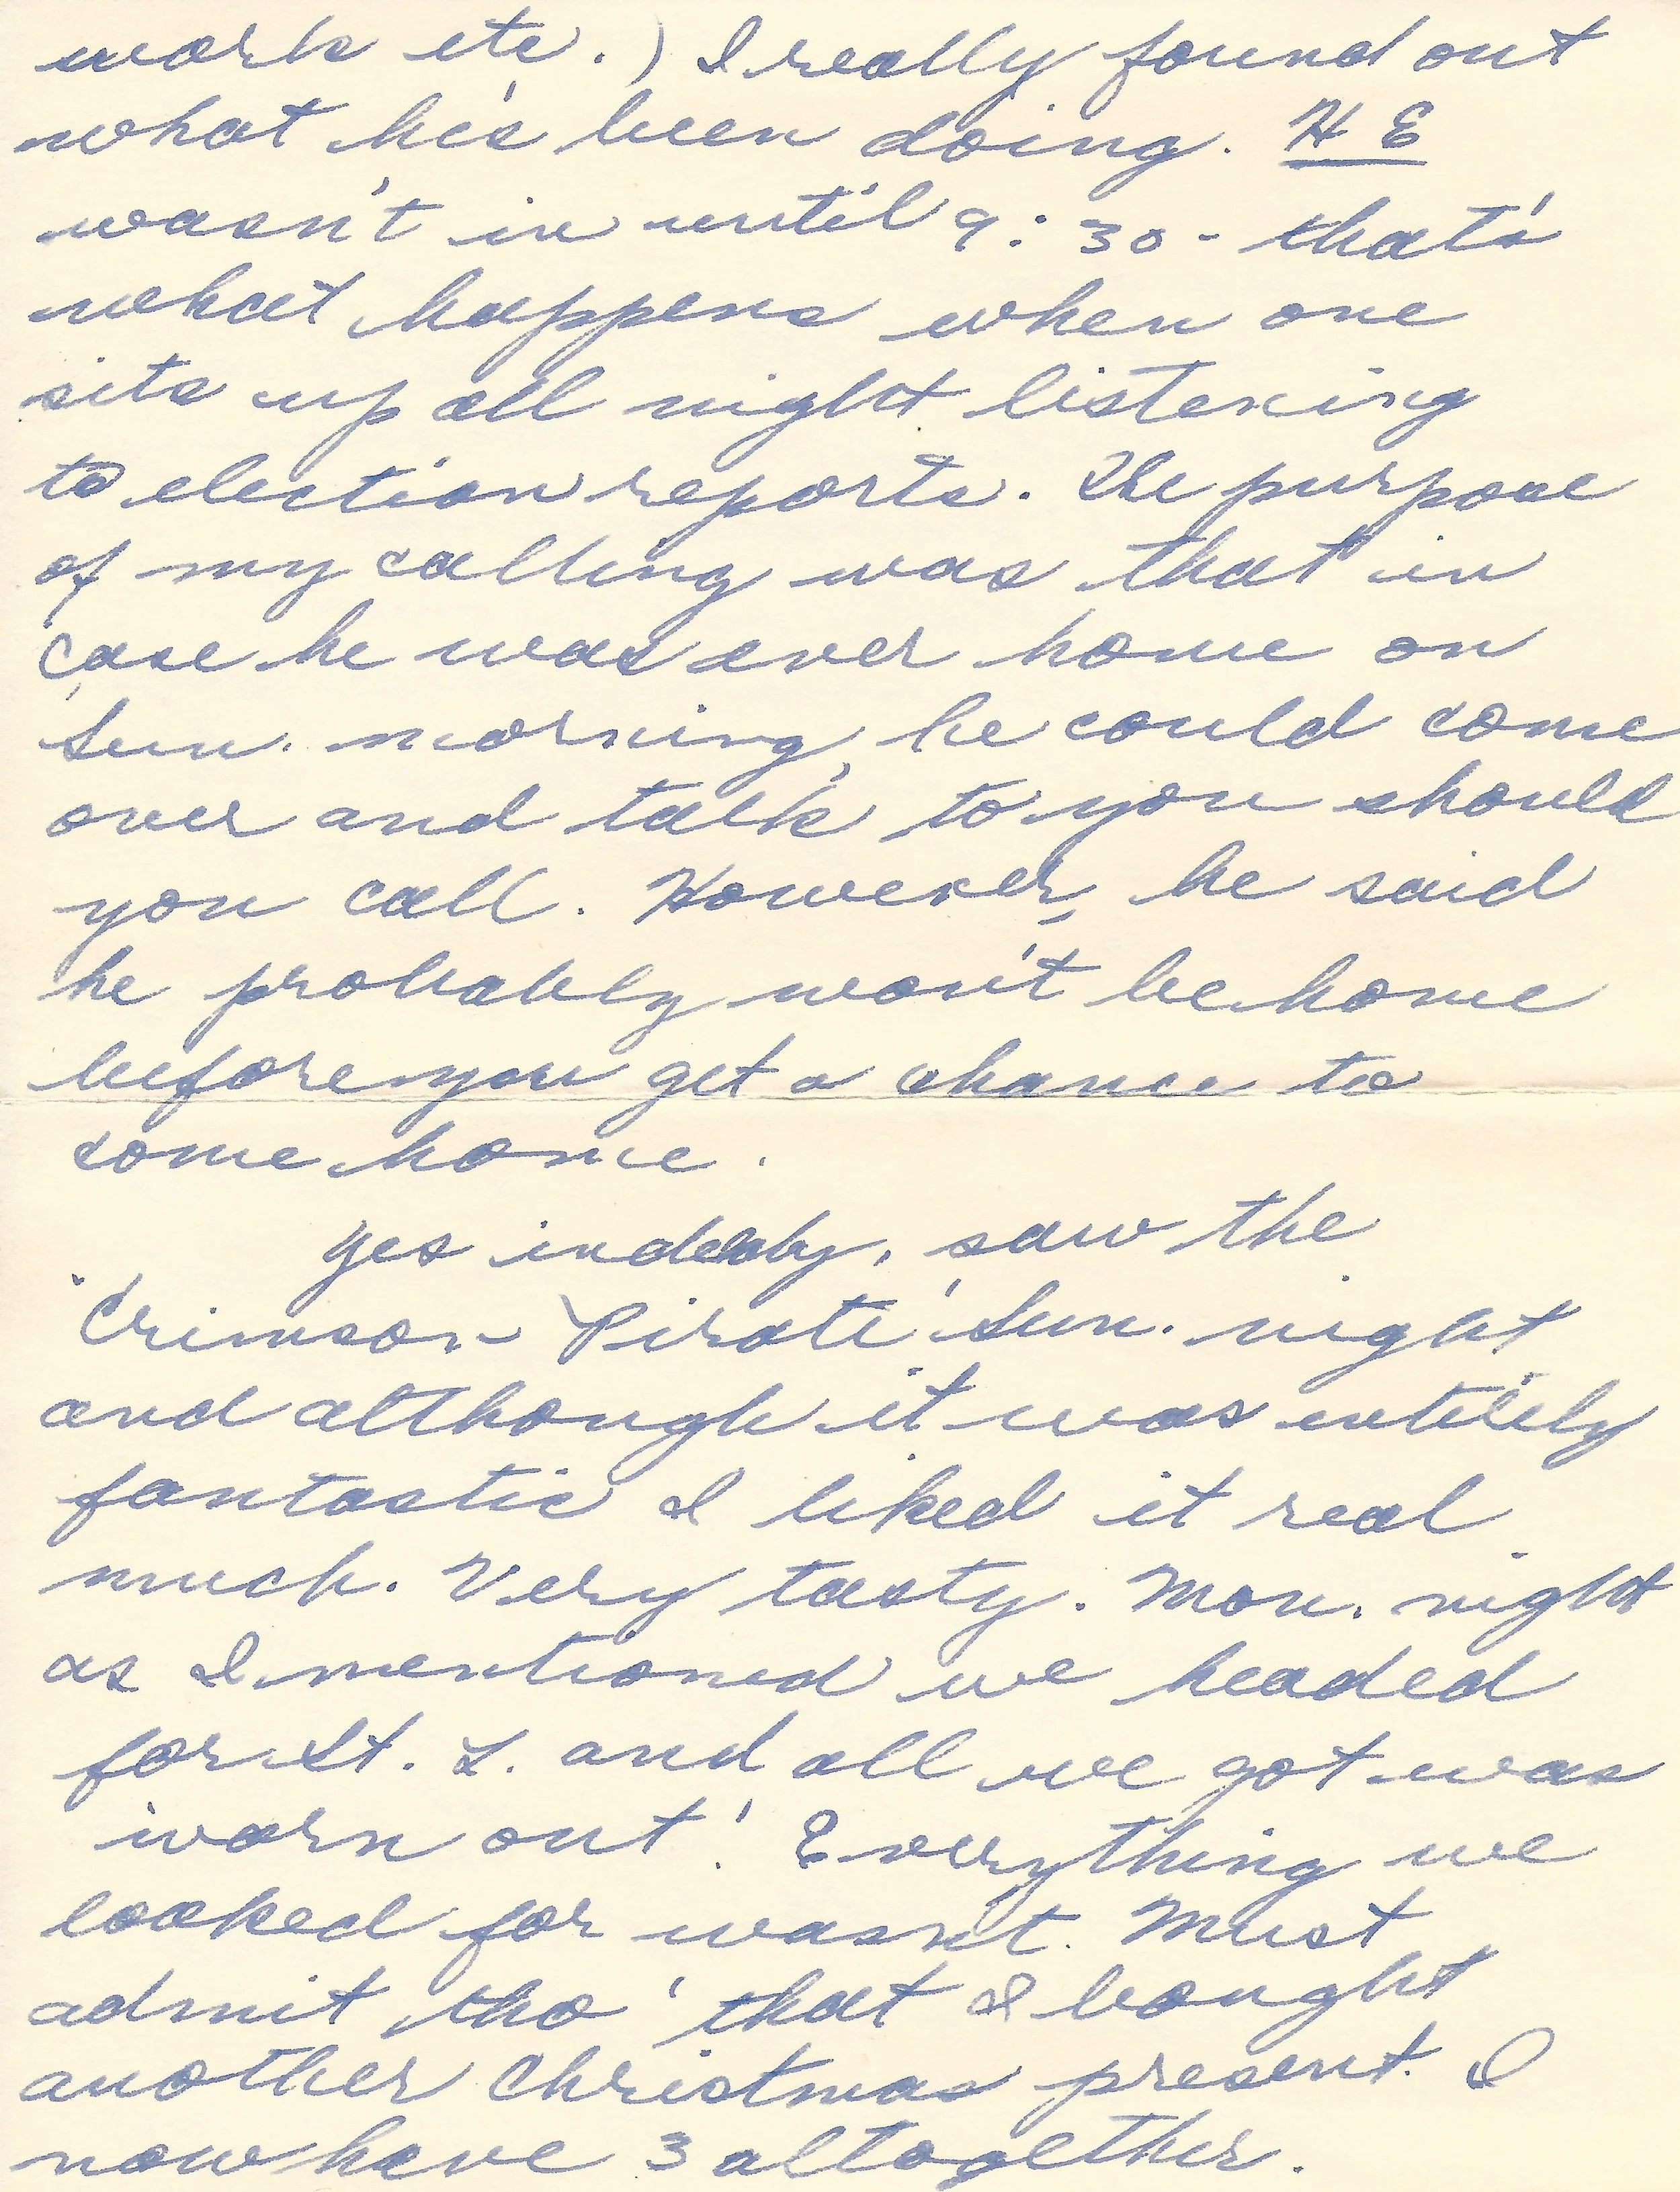 work etc.) I really found out
what he's been doing. H E
wasn't in until 9:30 - that's
what happens when one
sits up all night listening
to election reports. The purpose
of my calling was that in
case he was ever home on
Sun. morning, he could come
over and talk to you should
you call. However, he said
he probably won't be home
before you get a chance to
come home.
Yes indeedy, saw the
'Crimson Pirate' Sun. night
and although it was entirely
fantastic I liked it real
much. Very tasty. Mon. night
as I mentioned we headed
for St. L. and all we got was
'worn out'! Everything we
looked for wasn't. Must
admit tho' that I bought
another Christmas present. I
now have 3 altogether.